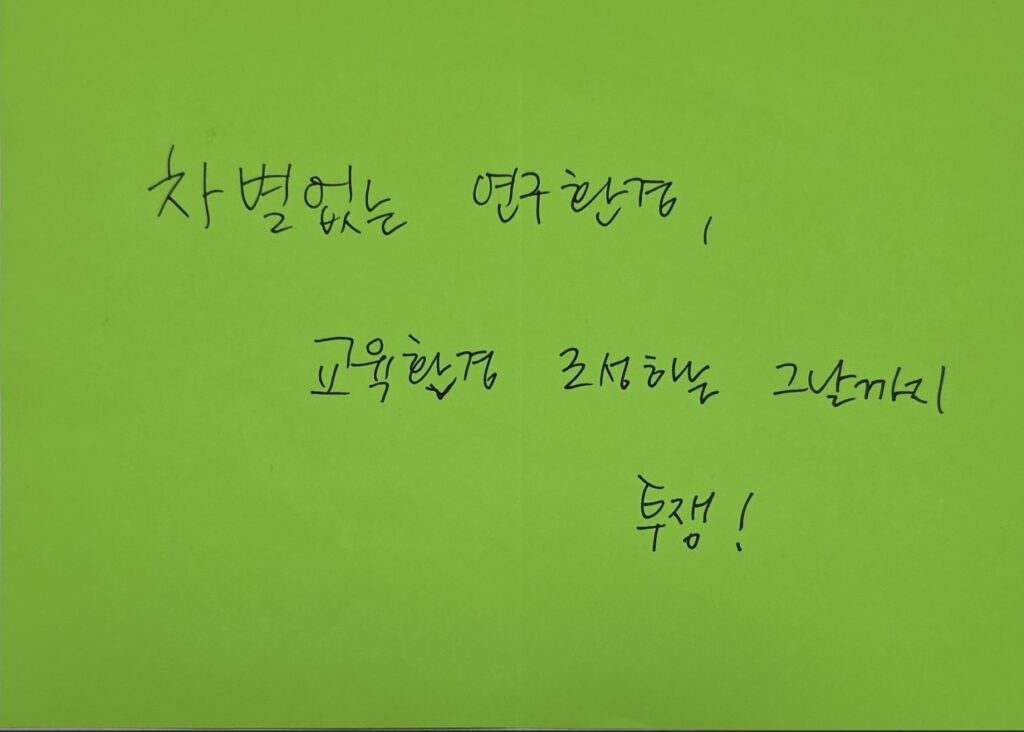 차별없는 연구환경,
교육환경 조성하는 그날까지
투쟁!